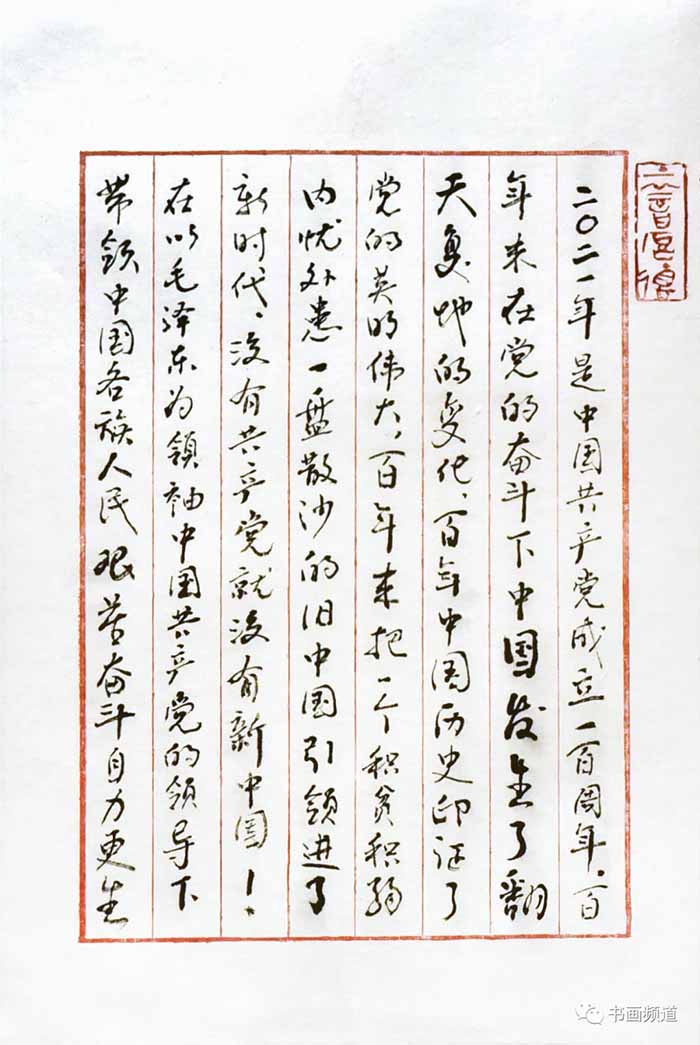 二〇二一年是中国共产党成立一百周年。百
年来在党的奋斗下中国发生了翻
天复地的变化、百年中国历史印证了
党的英明伟大、百年来把一个积贫积弱
内忧外患一盘散沙的旧中国引领进了
新时代、没有共产党就没有新中国！
在以毛泽东为领袖中国共产党的领导下
带领中国各族人民艰苦奋斗自力更生
书画频道